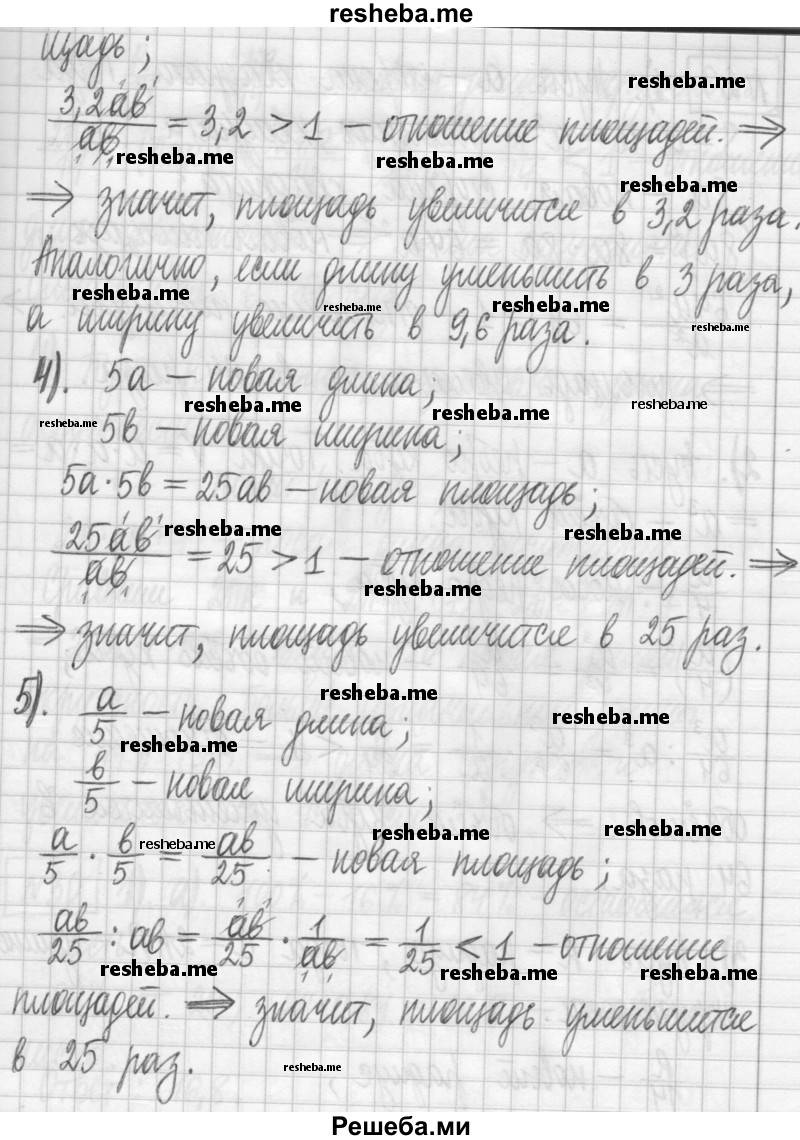 resheba.me
щадь;
resheba.me
3,2ab/ab = 3,2 > 1 — отношение площадей. ⇒
resheba.me resheba.me
resheba.me
⇒ значит, площадь увеличится в 3,2 раза.
Аналогично, если длину уменьшить в 3 раза,
resheba.me resheba.me resheba.me
а ширину увеличить в 9,6 раза.
resheba.me
4). 5a — новая длина;
resheba.me resheba.me resheba.me
resheba.me 5b — новая ширина;
5a · 5b = 25ab — новая площадь;
resheba.me resheba.me
25ab/ab = 25 > 1 — отношение площадей. ⇒
resheba.me
⇒ значит, площадь увеличится в 25 раз.
resheba.me
5). a/5 — новая длина;
resheba.me resheba.me
b/5 — новая ширина;
resheba.me resheba.me resheba.me
a/5 · b/5 = ab/25 — новая площадь;
ab/25 : ab = ab/25 · 1/ab = 1/25 < 1 — отношение
resheba.me resheba.me resheba.me
площадей. ⇒ значит, площадь уменьшится
в 25 раз.
resheba.me
Решеба.ми